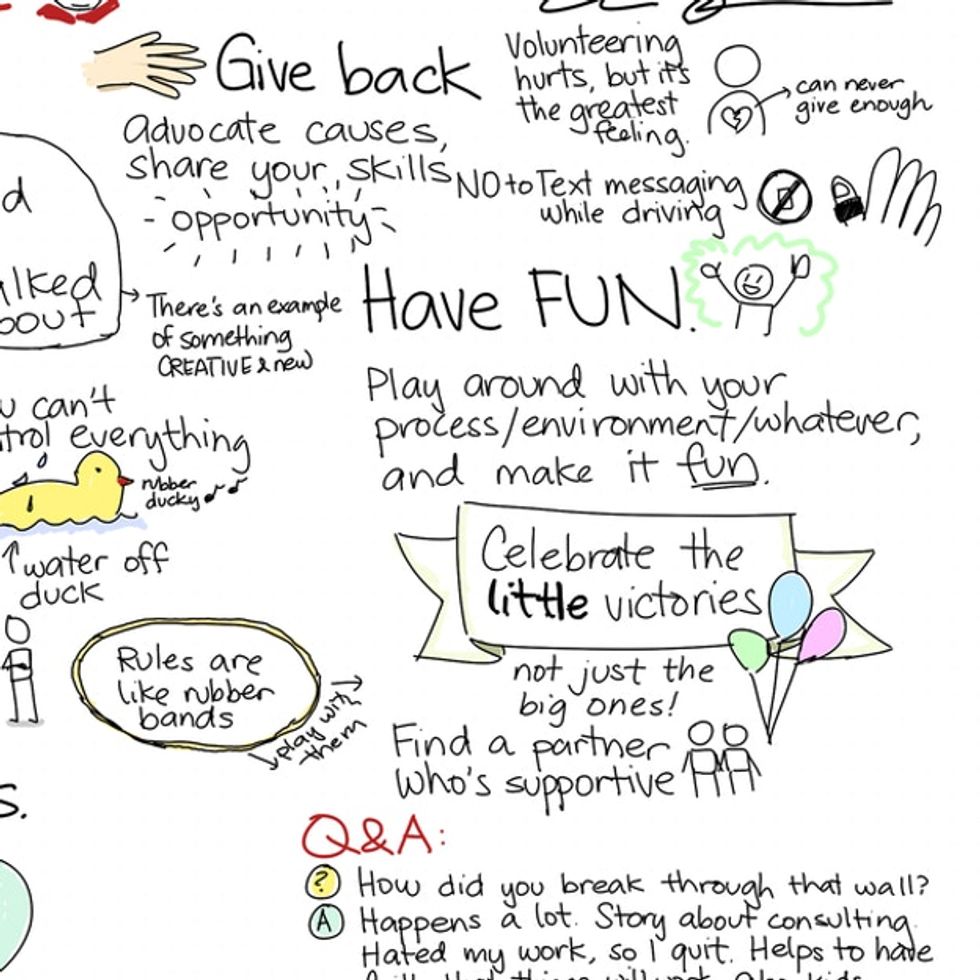 Give back
advocate causes,
share your skills
opportunity
Volunteering
hurts, but it's
the greatest
feeling.
can never
give enough
NO to Text messaging
while driving
d
alked
bout
There's an example
of something
CREATIVE & new
Have FUN.
Play around with your
process/environment/whatever,
and make it fun.
u can't
trol everything
rubber
ducky
water off
duck
Celebrate the
little victories
not just the
big ones!
Rules are
like rubber
bands
play with
them
Find a partner
who's supportive
s.
Q&A:
? How did you break through that wall?
A Happens a lot. Story about consulting.
Hated my work, so I quit. Helps to have